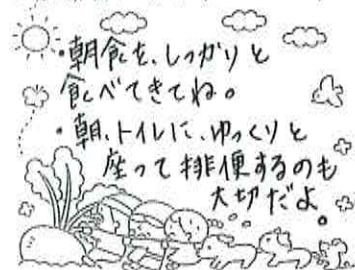 ・朝食を、しっかりと
食べてきてね。
・朝、トイレに、ゆっくりと
座って排便するのも
大切だよ。